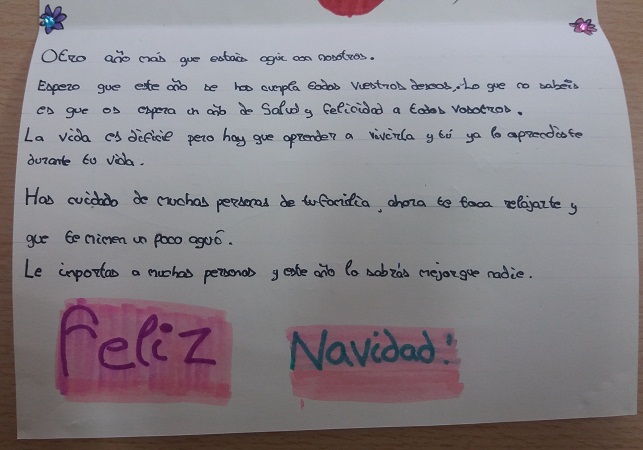 Otro año más que estais aqui con nosotros.
Espero que este año se hos cumpla todos vuestros deseos. Lo que no sabeis
es que os espera un año de Salud y felicidad a todos vosotros.
La vida es dificil pero hay que aprender a vivirla y tú ya lo aprendiste
durante tu vida.
Has cuidado de muchas personas de tu familia, ahora te toca relajarte y
que te mimen un poco aquí.
Le importas a muchas personas y este año lo sabrás mejor que nadie.
Feliz Navidad!